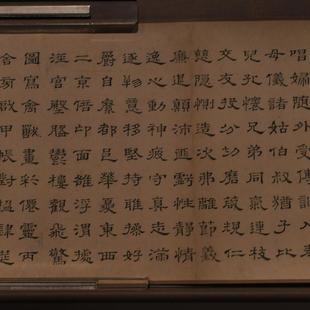 唱婦隨外受傅訓入奉
母儀諸姑伯叔猶子比
兒孔懷兄弟同氣連枝
交友投分切磨箴規仁
慈隱惻造次弗離節義
廉退顛沛匪虧性靜情
逸心動神疲守真志滿
逐物意移堅持雅操好
爵自縻都邑華夏東西
二京背邙面雒浮渭據
涇宮殿盤鬱樓觀飛驚
圖寫禽獸畫彩僊靈丙
舍傍啟甲帳對楹肆筵